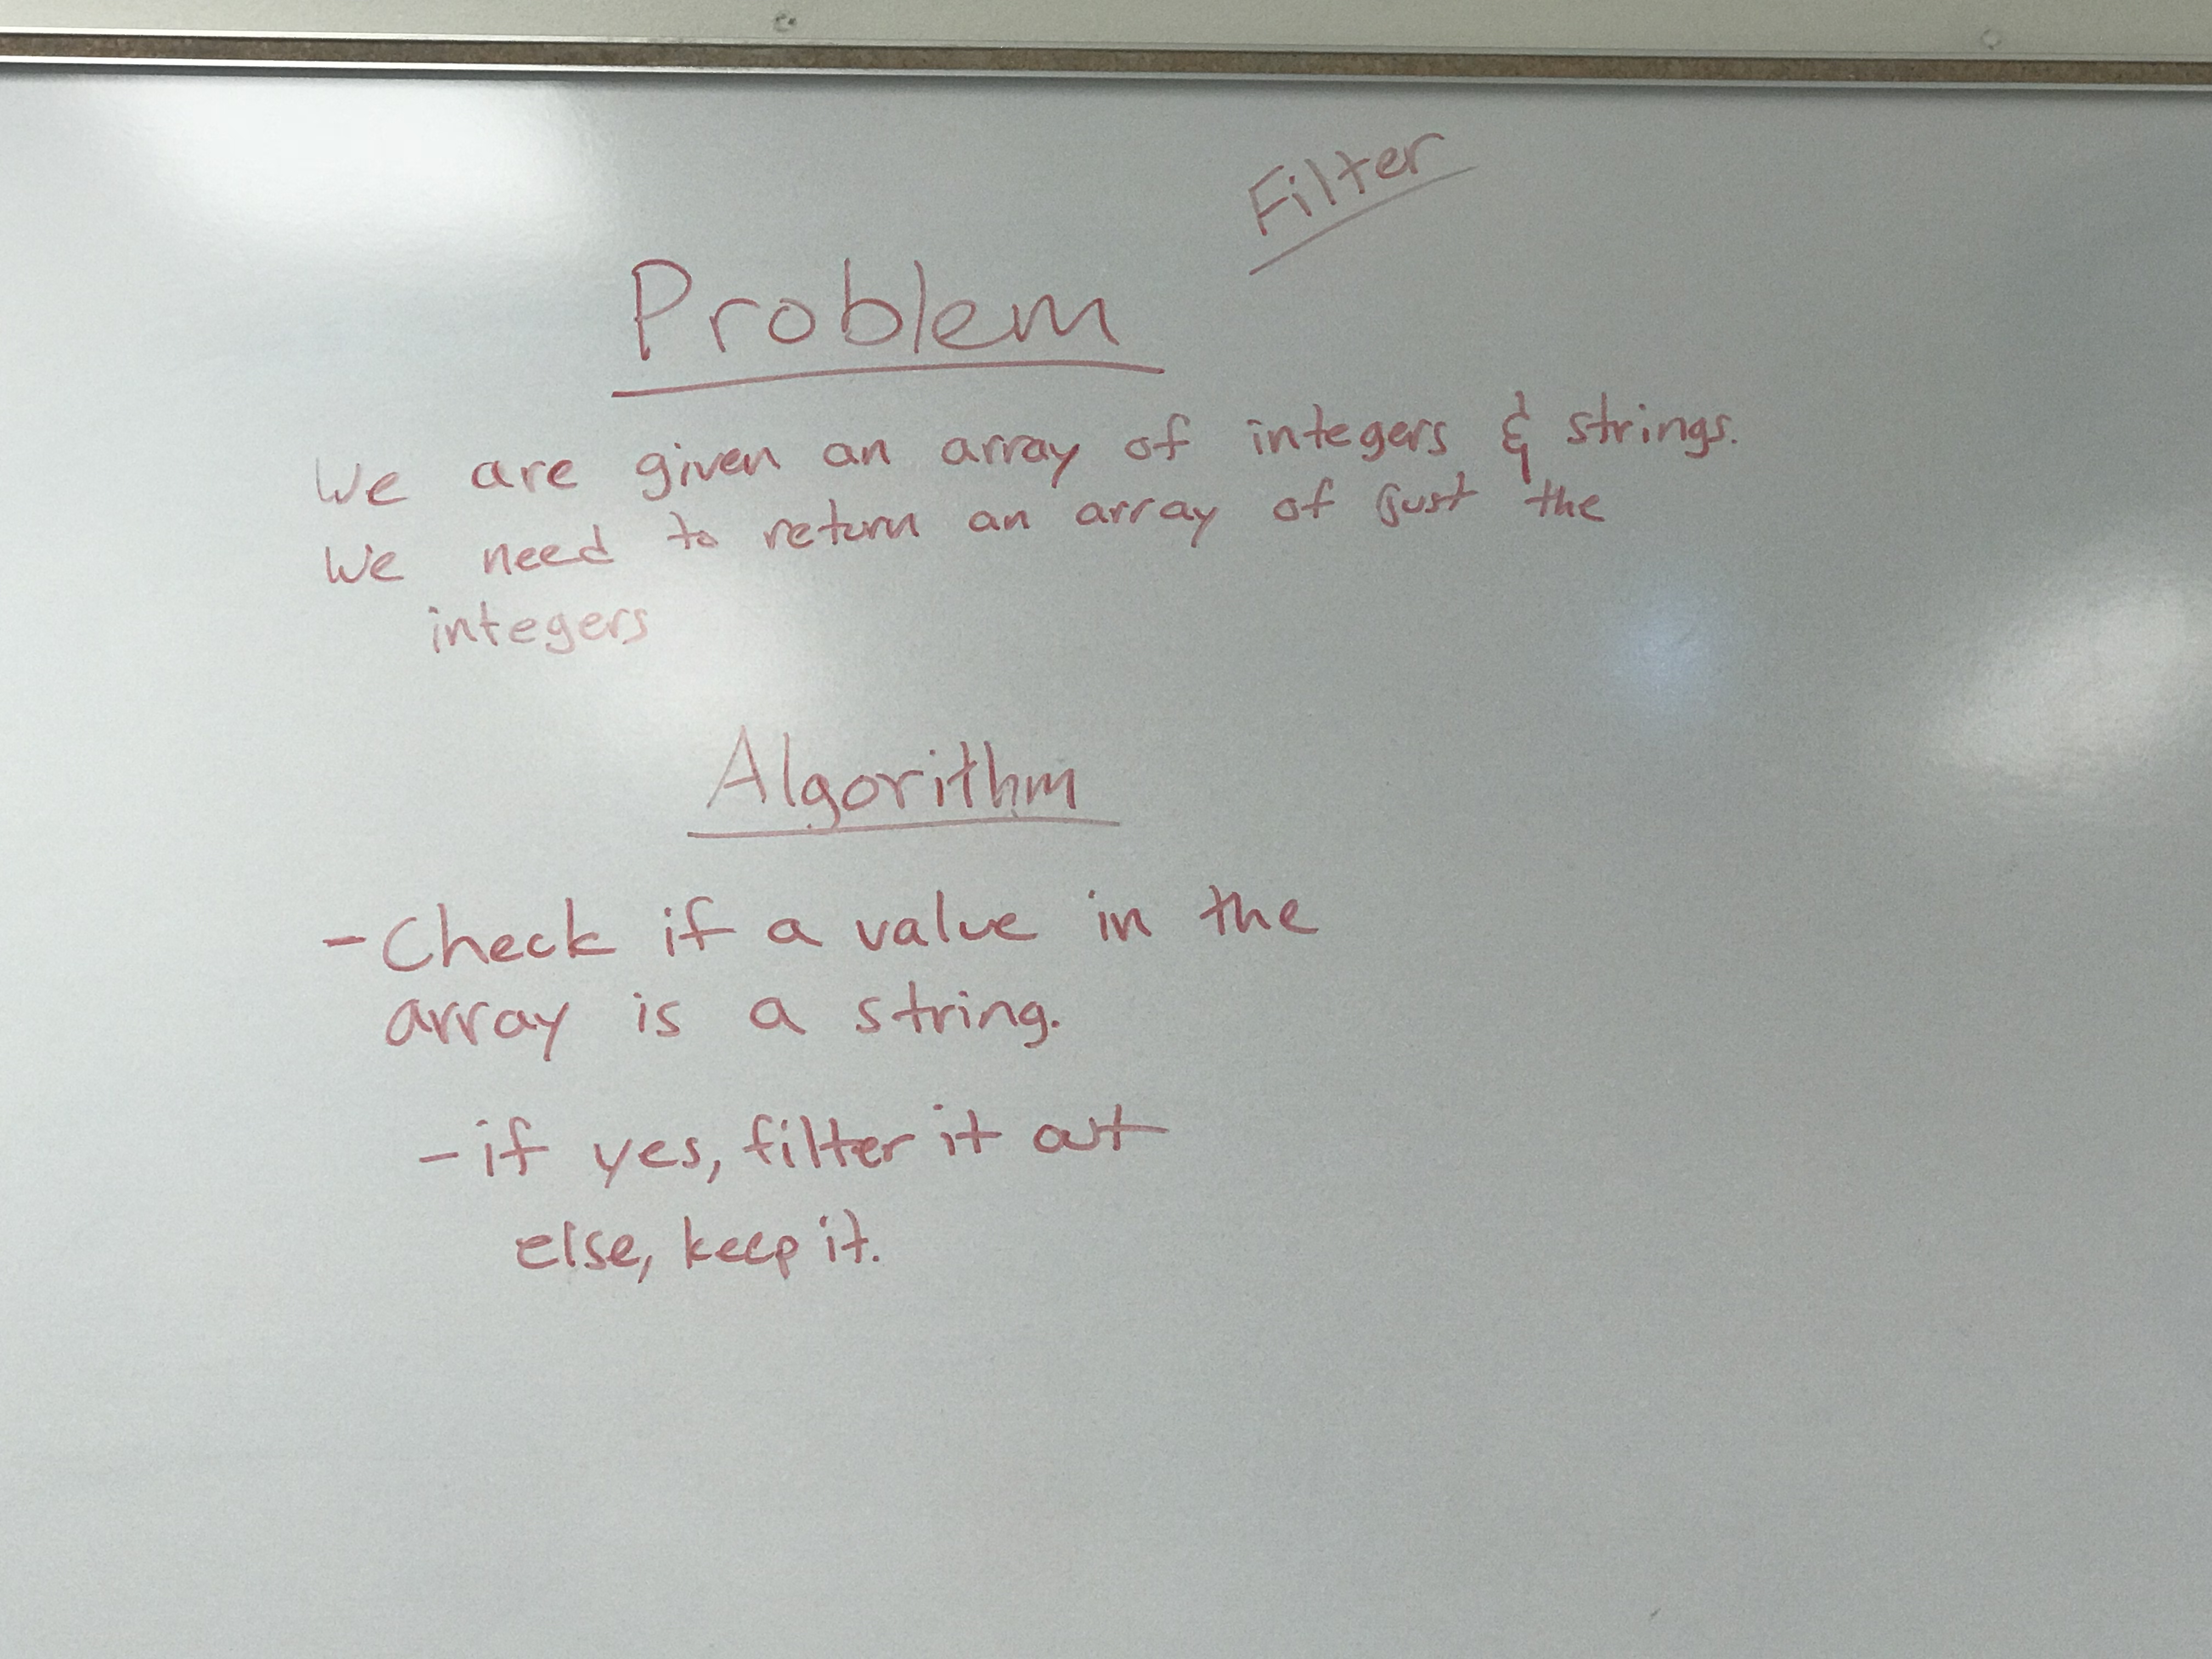 Filter
Problem
We are given an array of integers & strings.
We need to return an array of just the
integers
Algorithm
- Check if a value in the
array is a string.
- if yes, filter it out
else, keep it.